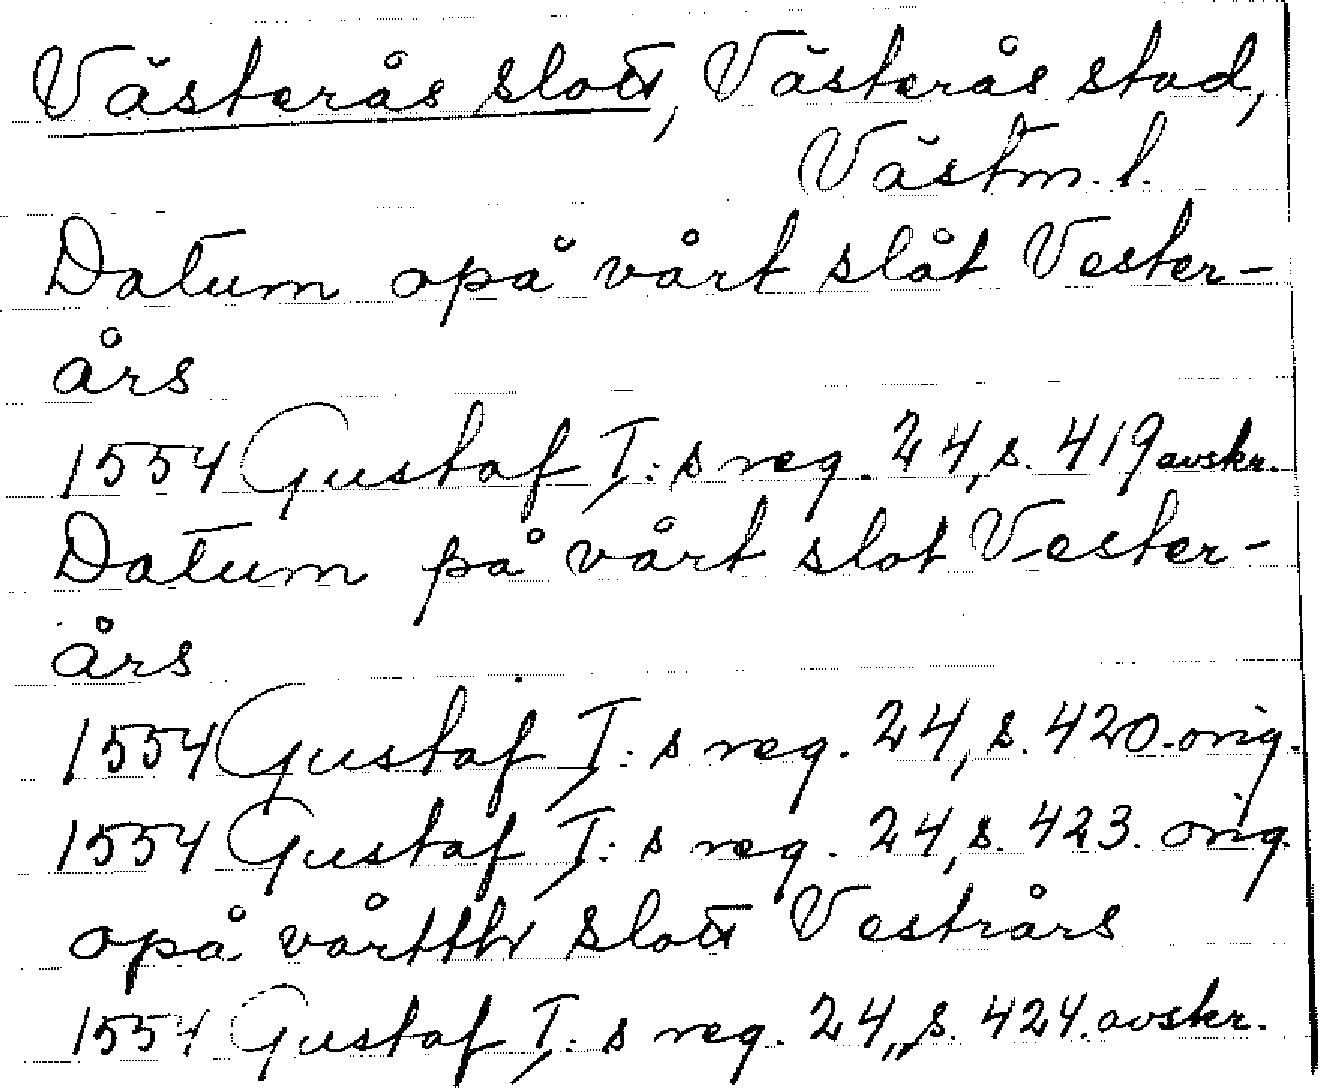 Västerås slott, Västerås stad,
Västm. l.
Datum opå vårt slåt Vester-
års
1554 Gustaf I:s reg. 24, s. 419 avskr.
Datum på vårt slot Vester-
års
1554 Gustaf I:s reg. 24, s. 420. orig.
1554 Gustaf I:s reg. 24, s. 423. orig.
opå vårtth slott Vestrårs
1554 Gustaf I:s reg. 24, s. 424. avskr.